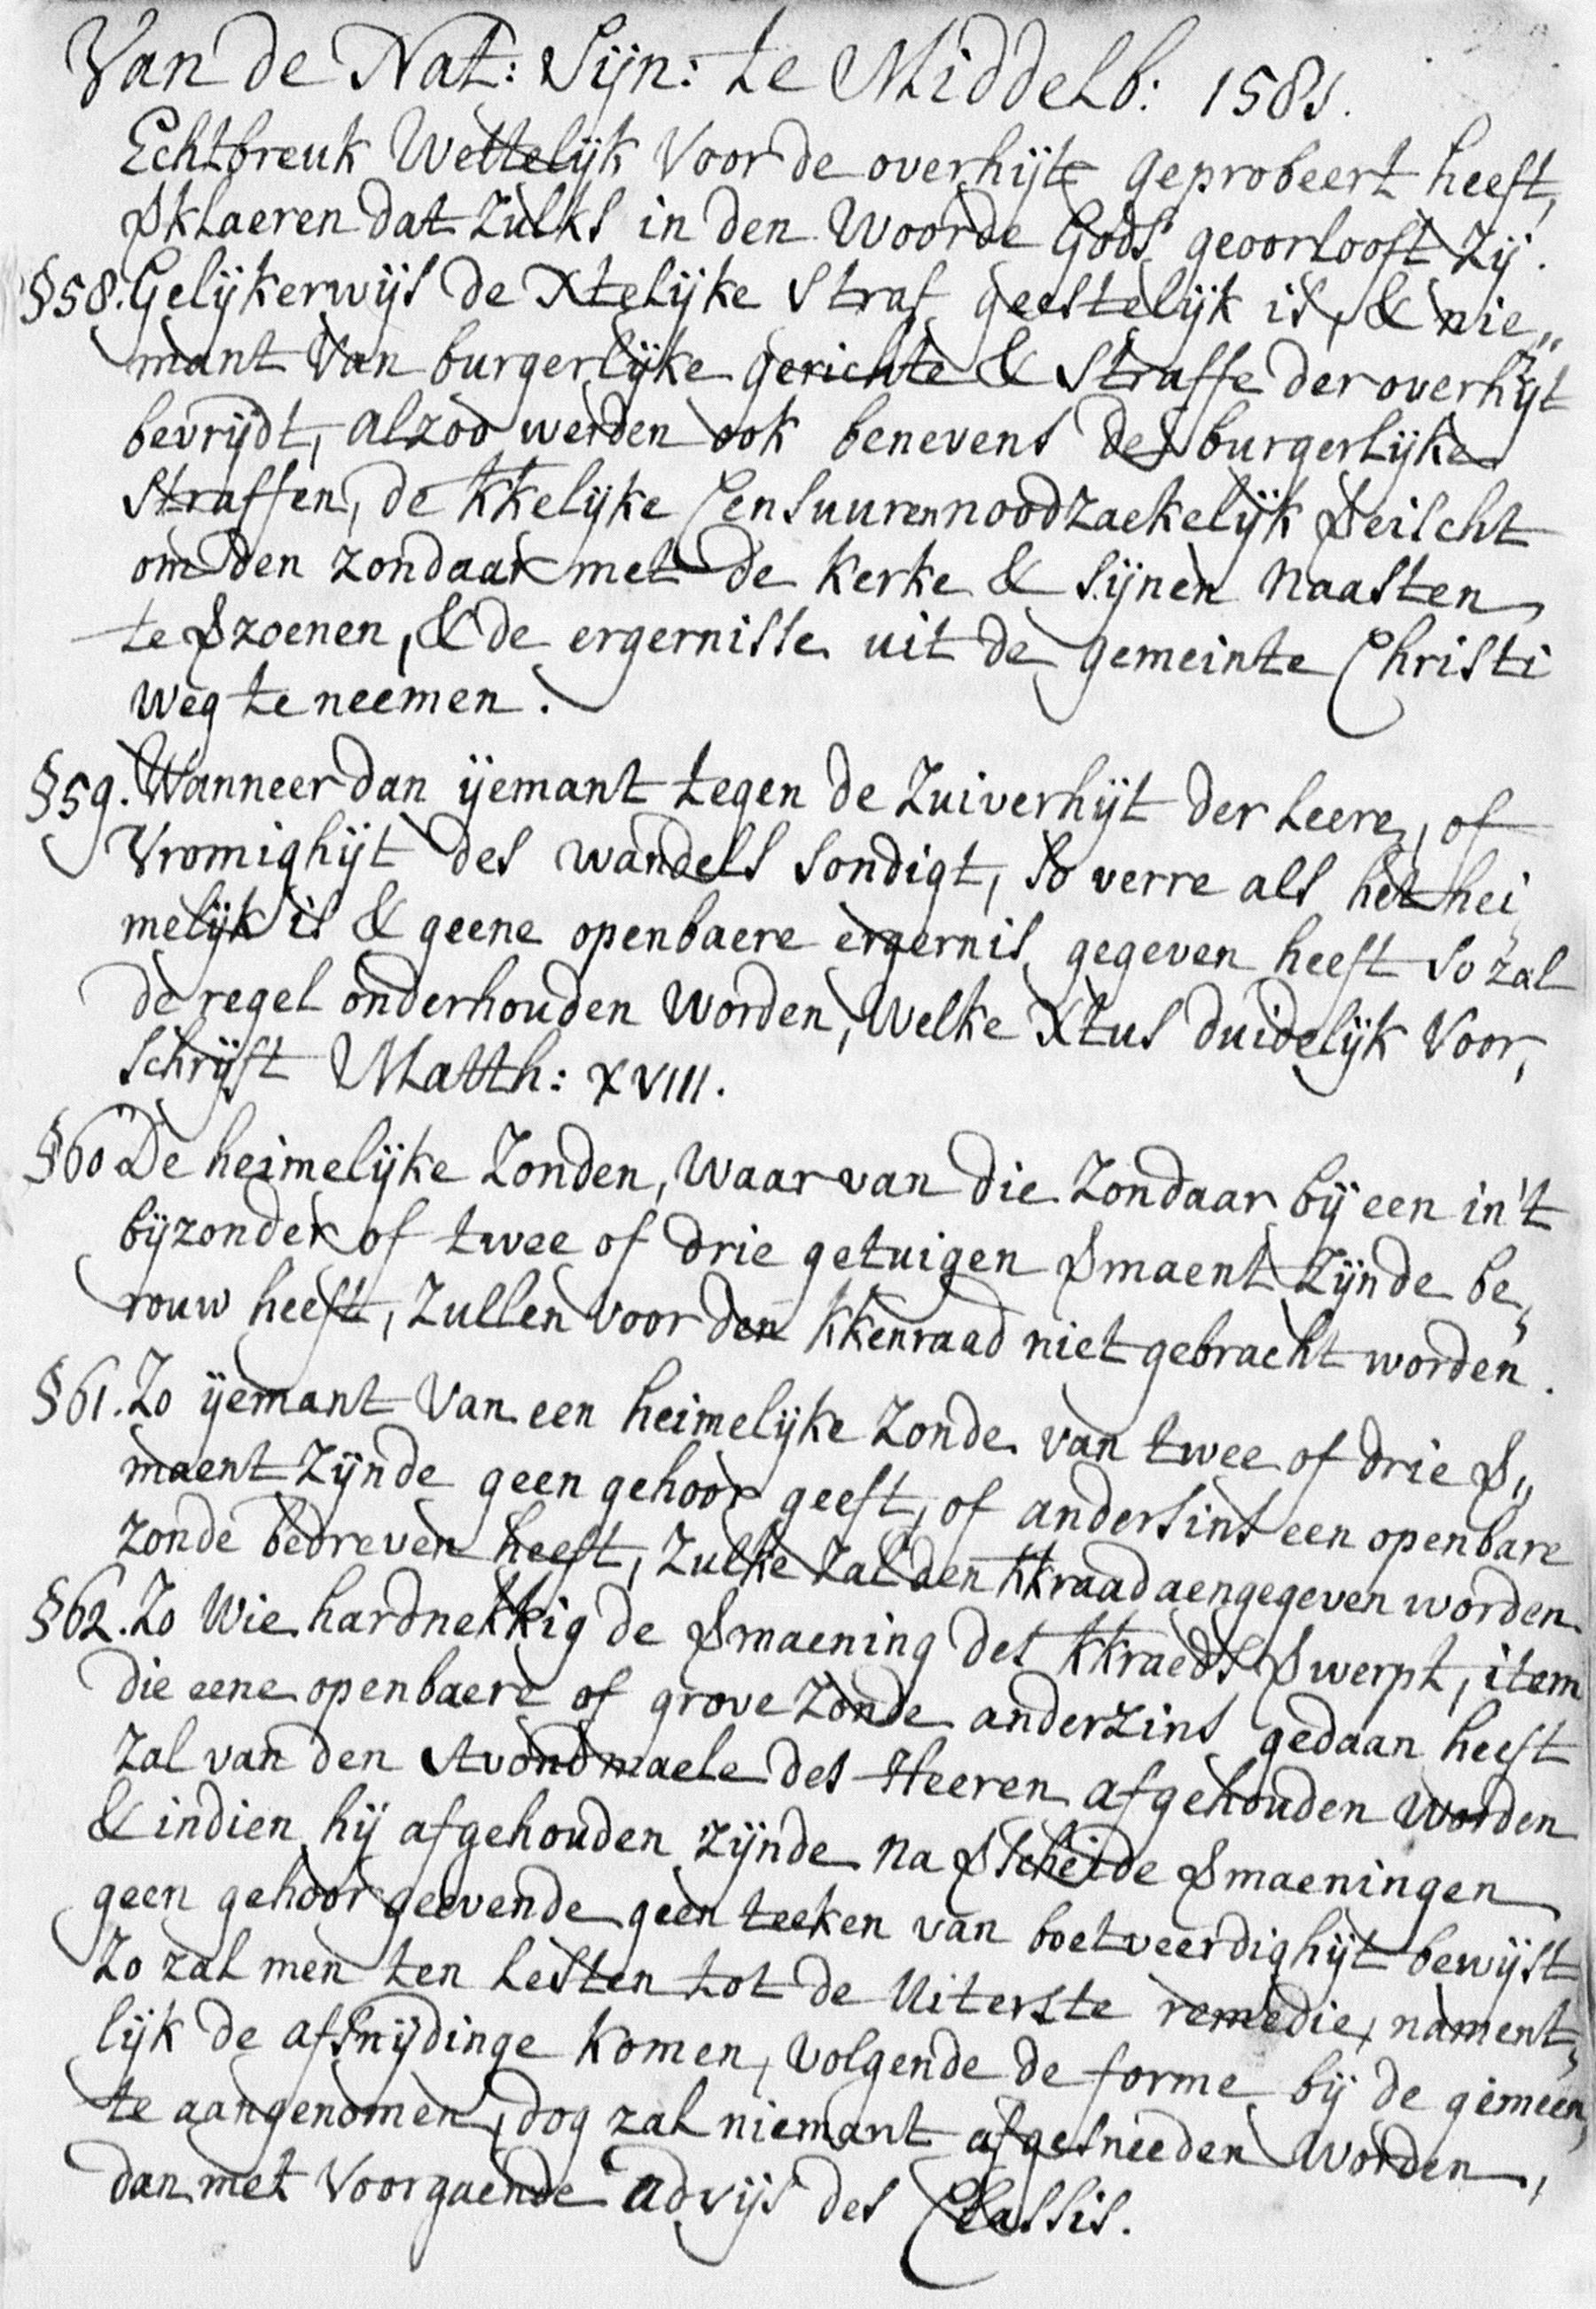 Van de Nat: Sijn: te Middelb: 1581.
Echtbreuk Wettelijk Voor de overhijt geprobeert heeft,
Vklaeren dat Zulks in den Woorde Gods geoorlooft Zij.
§58. Gelijkerwijs de Xtelijke Straf geestelijk is, & nie„
mant Van burgerlijke gerichte & Straffe der overhijt
bevrijdt, alzoo werden ook benevens de burgerlijke
Straffen, de kkelijke Censuuren noodzaekelijk Veischt
om den zondaar met de Kerke & Sijnen Naasten
te Vzoenen, & de ergernisse uit de gemeinte Christi
weg te neemen.
§59. Wanneer dan ijemant tegen de Zuiverhijt der Leere, of
Vromighijt des wandels Sondigt, So verre als het hei„
melijk is & geene openbaere ergernis gegeven heeft So zal
de regel onderhouden Worden, Welke Xtus duidelijk Voor„
Schrijft Matth: XVIII.
§60 De heimelijke Zonden, Waar van die Zondaar bij een in't
bijzonder of twee of drie getuigen Vmaent Zijnde be„
rouw heeft, Zullen voor den kkenraad niet gebracht worden.
§61. Zo ijemant Van een heimelijke Zonde van twee of drie V„
maent Zijnde geen gehoor geeft, of andersins een openbare
Zonde bedreven heeft, Zulke Zal den kkraad aengegeven worden.
§62. Zo Wie hardnekkig de Vmaening des kkraeds Vwerpt, item
die eene openbaere of grove Zonde anderzins gedaan heeft
Zal van den Avondmaele des Heeren afgehouden Worden
& indien hij afgehouden zijnde na Vscheide Vmaeningen
geen gehoor geevende geen teeken van boetveerdighijt bewijst
Zo zal men ten Lesten tot de Uiterste remedie, nament„
lijk de afsnijdinge Komen, Volgende de forme bij de gemeen„
te aangenomen, dog zal niemant afgesneeden Worden,
dan met Voorgaende Advijs des Classis.